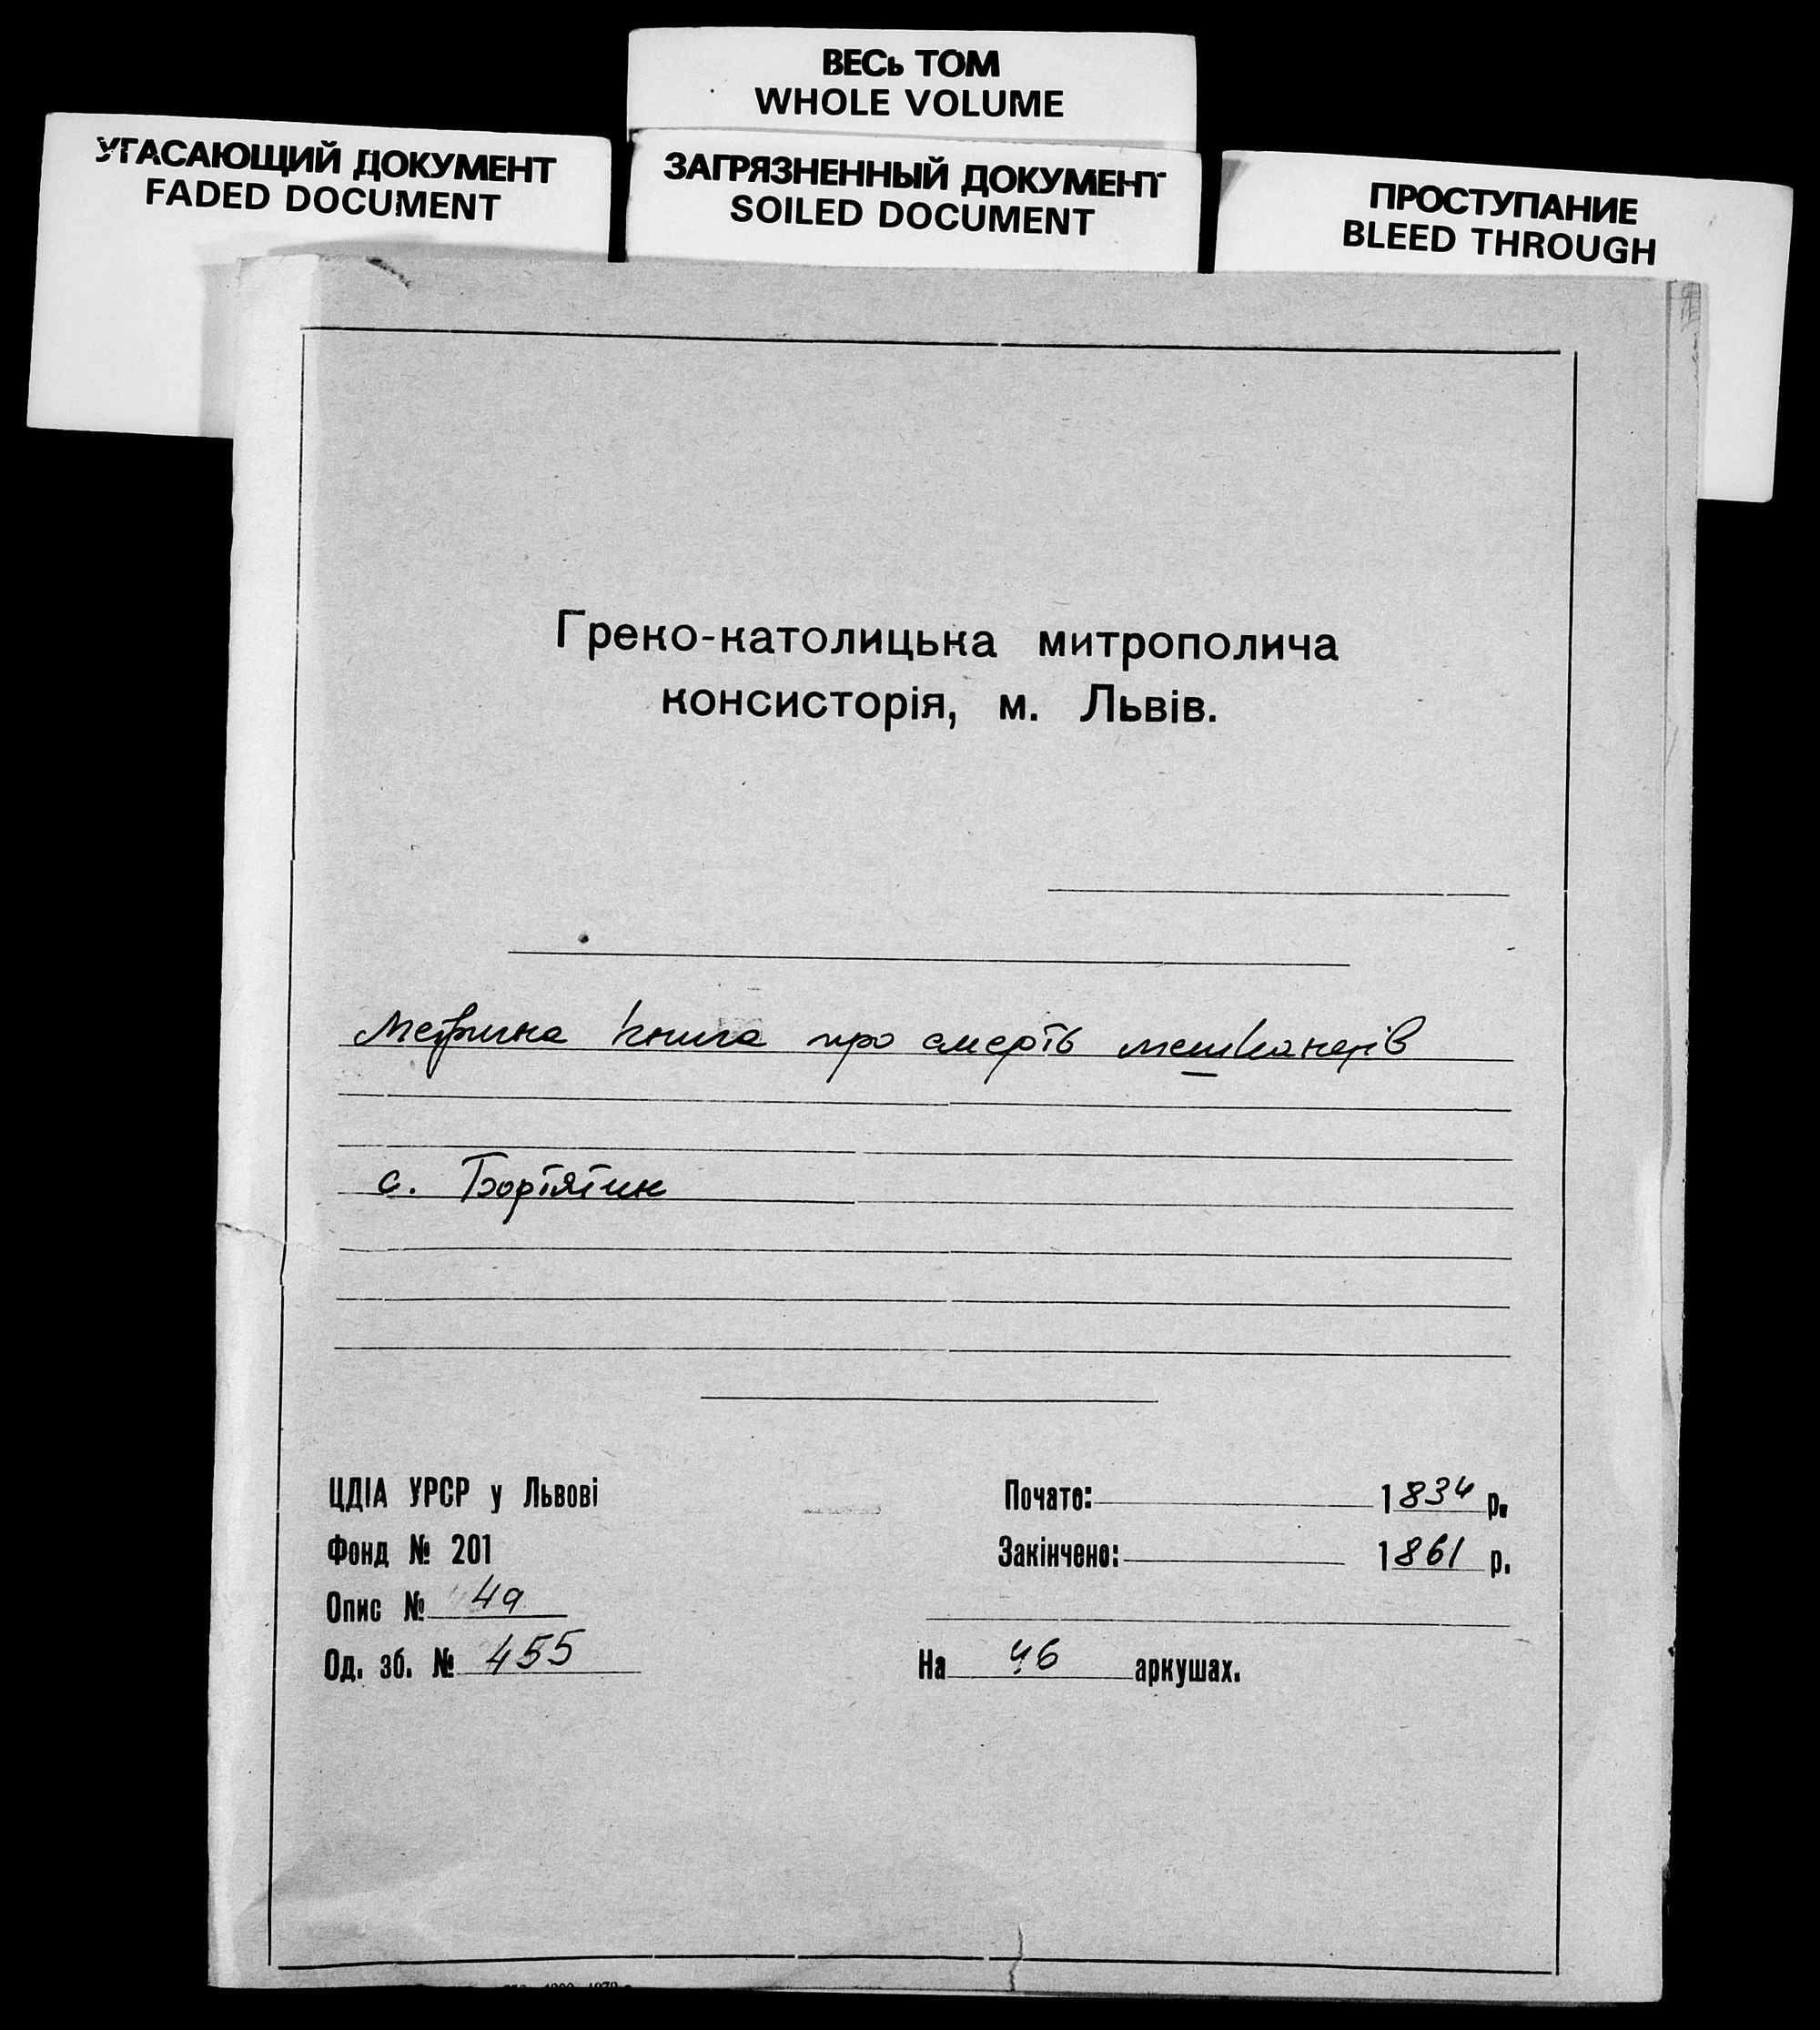 ВЕСЬ ТОМ
WHOLE VOLUME
УГАСАЮЩИЙ ДОКУМЕНТ
FADED DOCUMENT
ЗАГРЯЗНЕННЫЙ ДОКУМЕНТ
SOILED DOCUMENT
ПРОСТУПАНИЕ
BLEED THROUGH
Греко-католицька митрополича
консисторія, м. Львів.
Метрична книга про смерть мешканців
с. Бортятин
ЦДІА УРСР у Львові
Фонд № 201
Опис № 4а
Од. зб. № 455
Почато: 1834 р.
Закінчено: 1861 р.
На 46 аркушах.